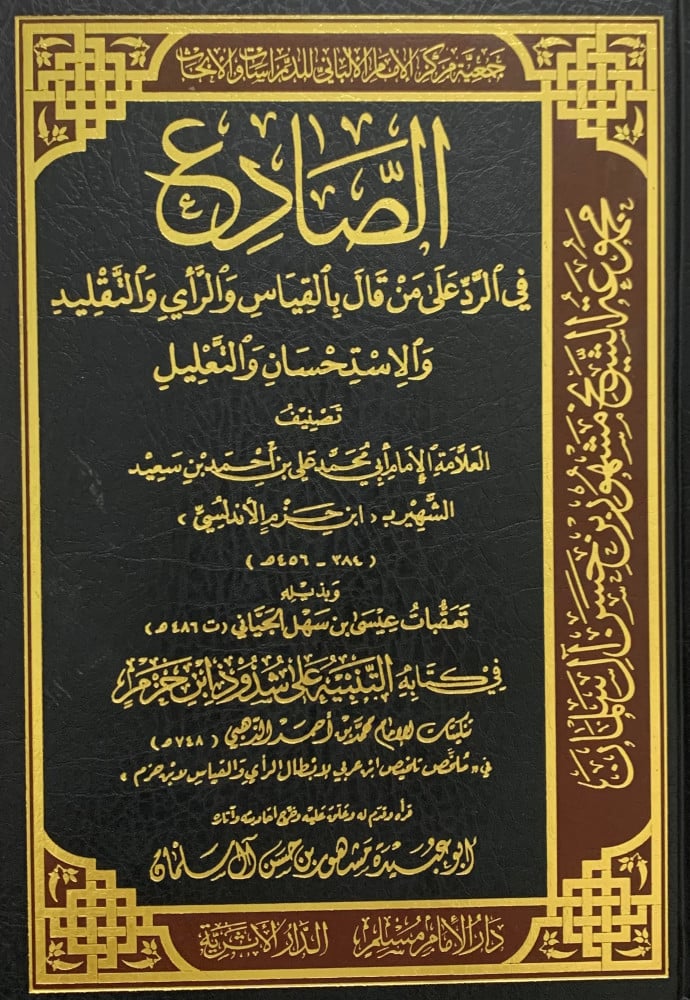 جمعية مركز الإمام الألباني للدراسات والأبحاث
الصَّادِع
فِي الرَّدِّ عَلَى مَنْ قَالَ بِالقِيَاسِ وَالرَّأْيِ وَالتَّقْلِيدِ
وَالِاسْتِحْسَانِ وَالتَّعْلِيلِ
تَصْنِيفُ
العَلَّامَةِ الإِمَامِ أَبِي مُحَمَّد عَلِيِّ بْنِ أَحْمَد بْنِ سَعِيْد
الشَّهِيْرِ بـ ‹ابن حَزْمٍ الأَندلُسِيِّ›
(٣٨٤ - ٤٥٦هـ)
وَبِذَيْلِهِ
تَعَقُّبَاتُ عِيْسَى بن سَهْل الجَيَّاني (ت ٤٨٦هـ)
فِي كتَابِهِ التَّنبِيْهُ عَلَى شُذُوذِ ابْنِ حَزْمٍ
نكتات للإمام محمد بن أحمد الذهبي (٧٤٨هـ)
في «مُلخَّص تلخيص ابن عربي لإبطال الرأي والقياس لابن حزم»
قرأه وقدم له وعلق عليه وخرج أحاديثه وآثاره
أبو عبيدة مشهور بن حسن آل سلمان
مجموعة الشيخ مشهور بن حسن آل سلمان
دار الإمام مسلم
الدار الأثرية